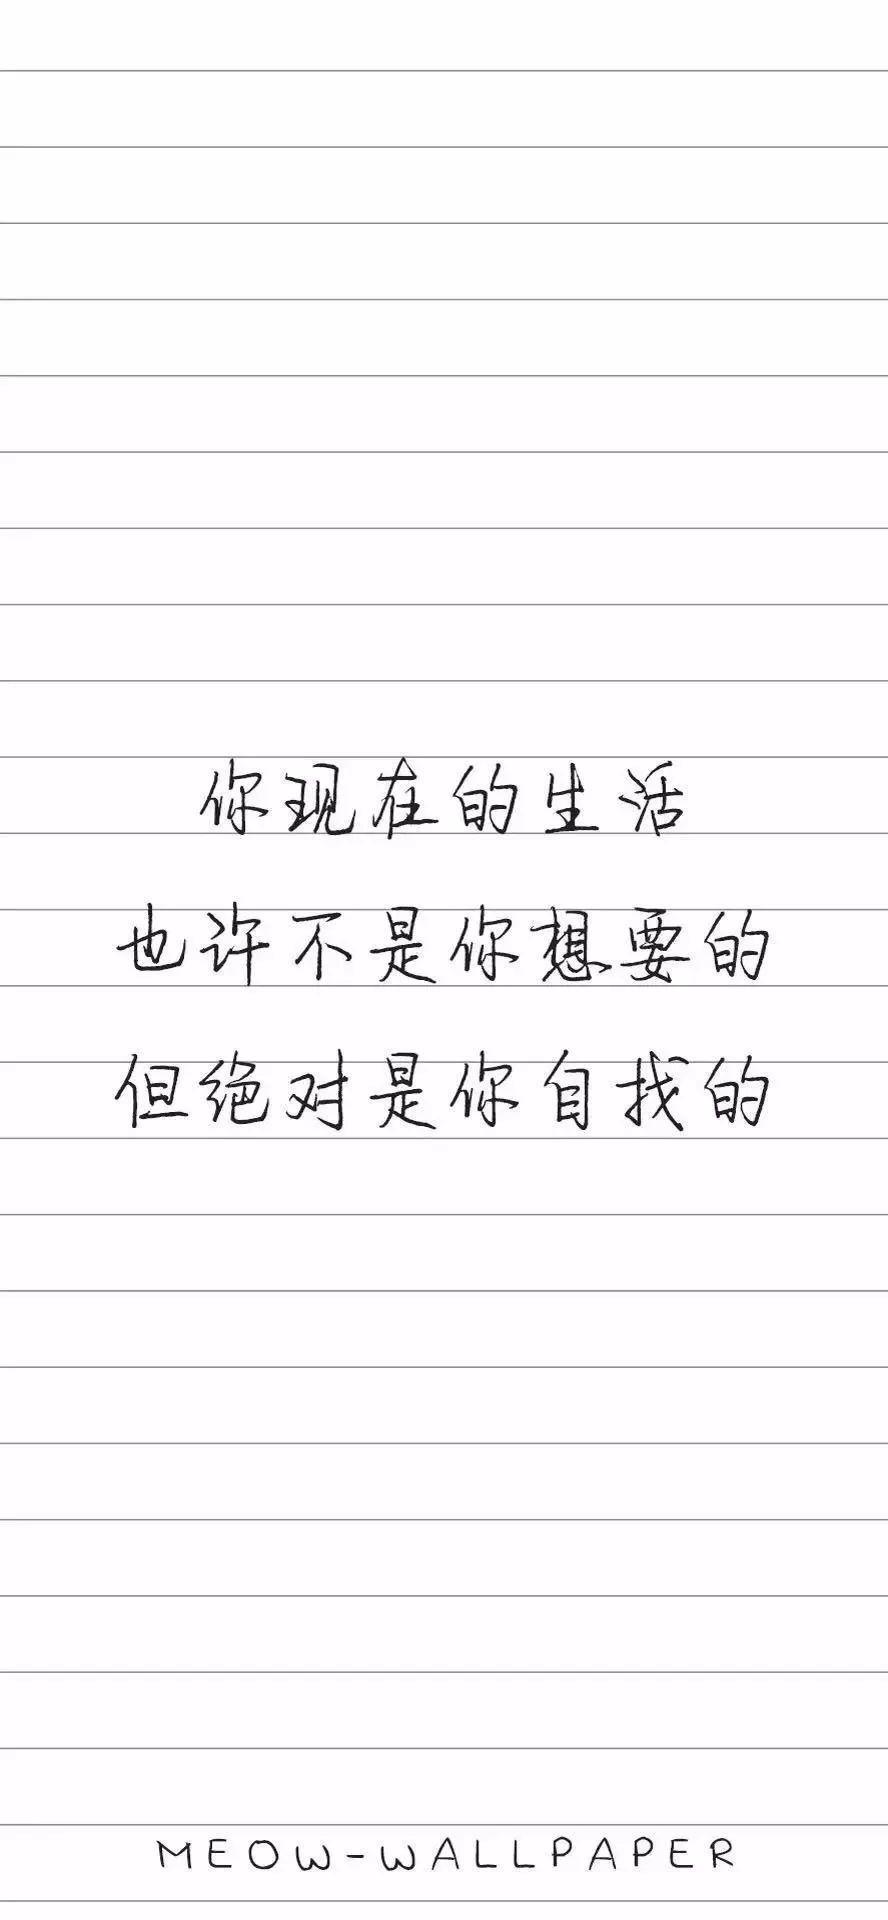 你现在的生活
也许不是你想要的
但绝对是你自找的
MEOW-WALLPAPER